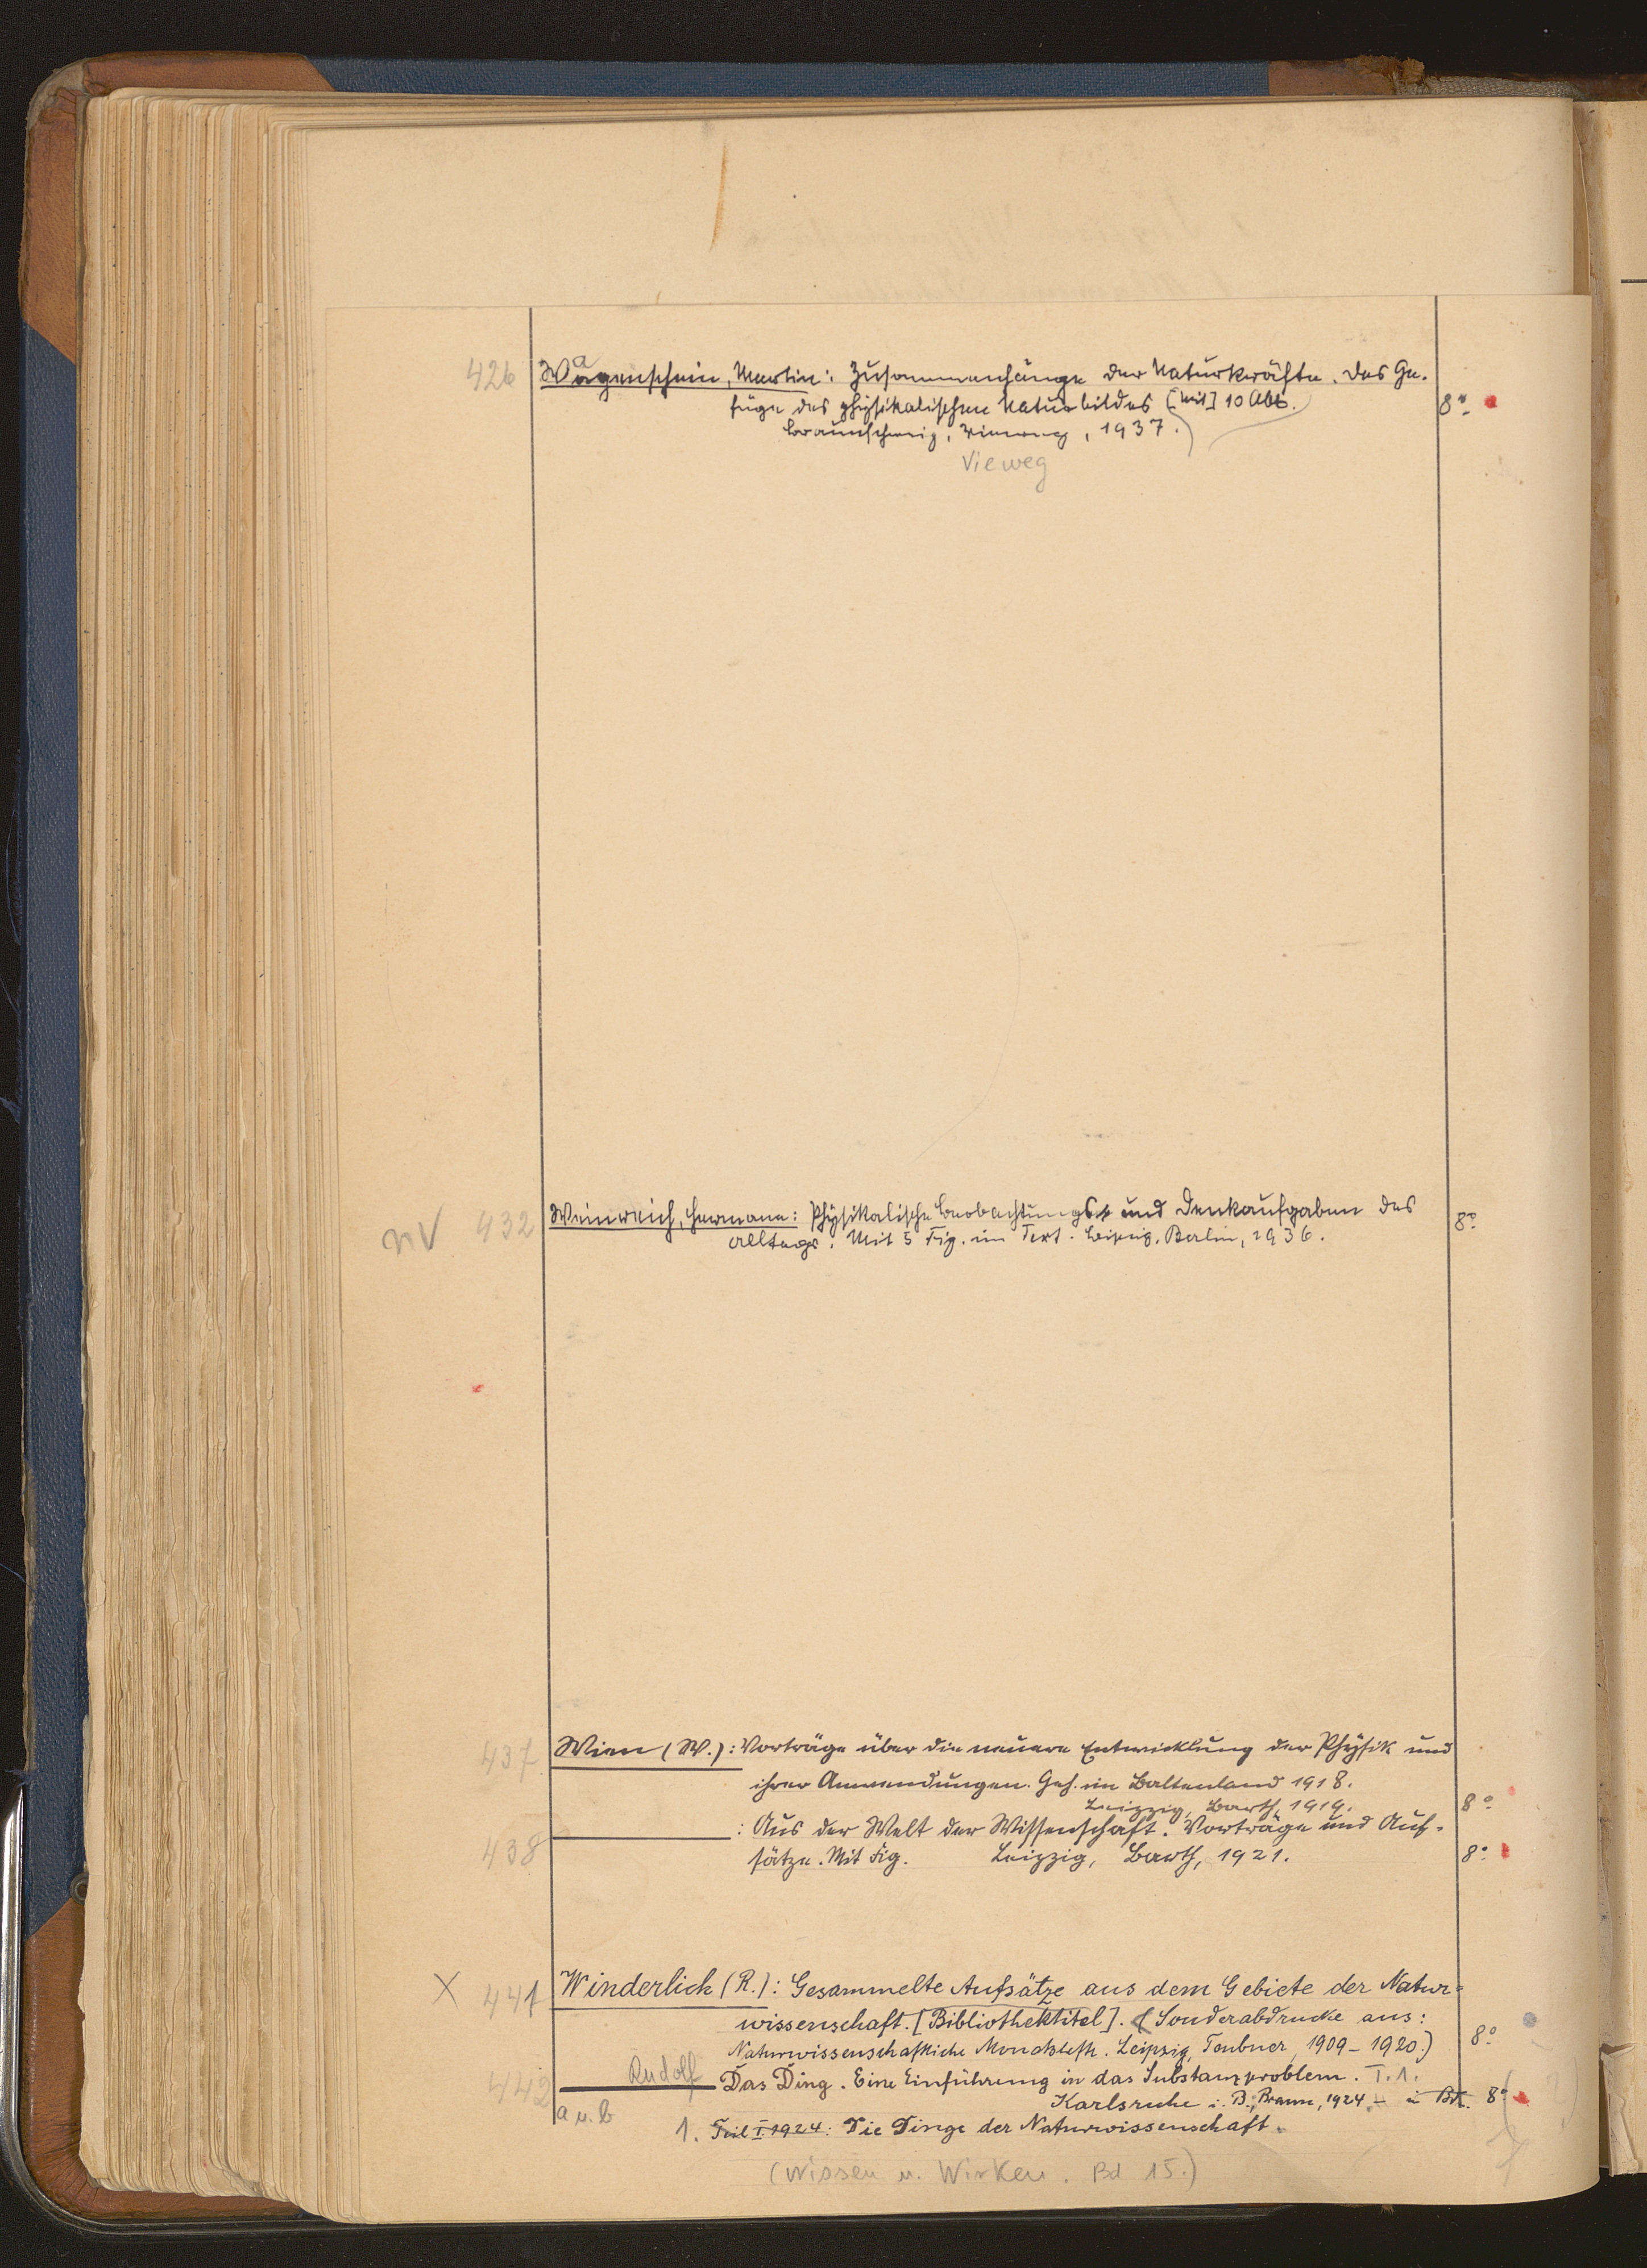 426 Wagenschein, Martin: Zusammenhänge der Naturkräfte. Das Ge-
füge des physikalischen Naturbildes [Mit] 10 Abb. 8°
Braunschweig, Vieweg, 1937.)
Vieweg
nV 432 Weinreich, Hermann: Physikalische Beobachtungs- und Denkaufgaben des 8°
Alltags. Mit 5 Fig. im Text. Leipzig, Berlin, 1936.
437 Wien (W.): Vorträge über die neuere Entwicklung der Physik und
ihrer Anwendungen. Geh. im Baltenland 1918.
Leipzig, Barth, 1919. 8°
438 : Aus der Welt der Wissenschaft. Vorträge und Auf-
sätze. Mit Fig. Leipzig, Barth, 1921. 8°
X 441 Winderlich (R.): Gesammelte Aufsätze aus dem Gebiete der Natur-
wissenschaft. [Bibliothektitel]. (Sonderabdrucke aus:
Naturwissenschaftliche Monatshefte. Leipzig, Teubner, 1909-1920.) 8°
442 Rudolf Das Ding. Eine Einführung in das Substanzproblem. T. 1.
a u. b Karlsruhe i. B., Braun, 1924 - Bd. 8°
1. Teil I 1924: Die Dinge der Naturwissenschaft.
(Wissen u. Wirken. Bd 15.)